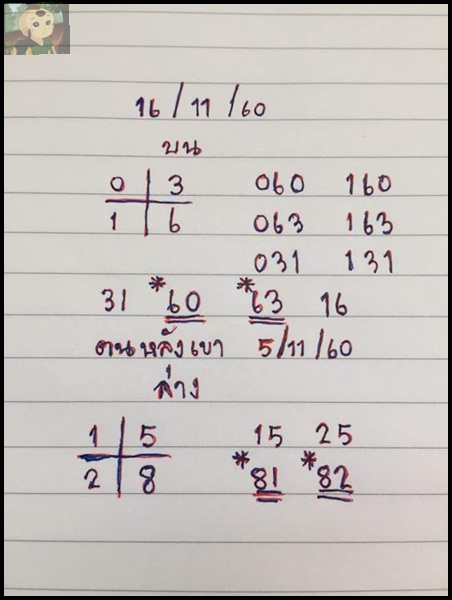 16/11/60
บน
0 3 060 160
1 6 063 163
031 131
31 *60 *63 16
คนหลังเขา 5/11/60
ล่าง
1 5 15 25
2 8 *81 *82